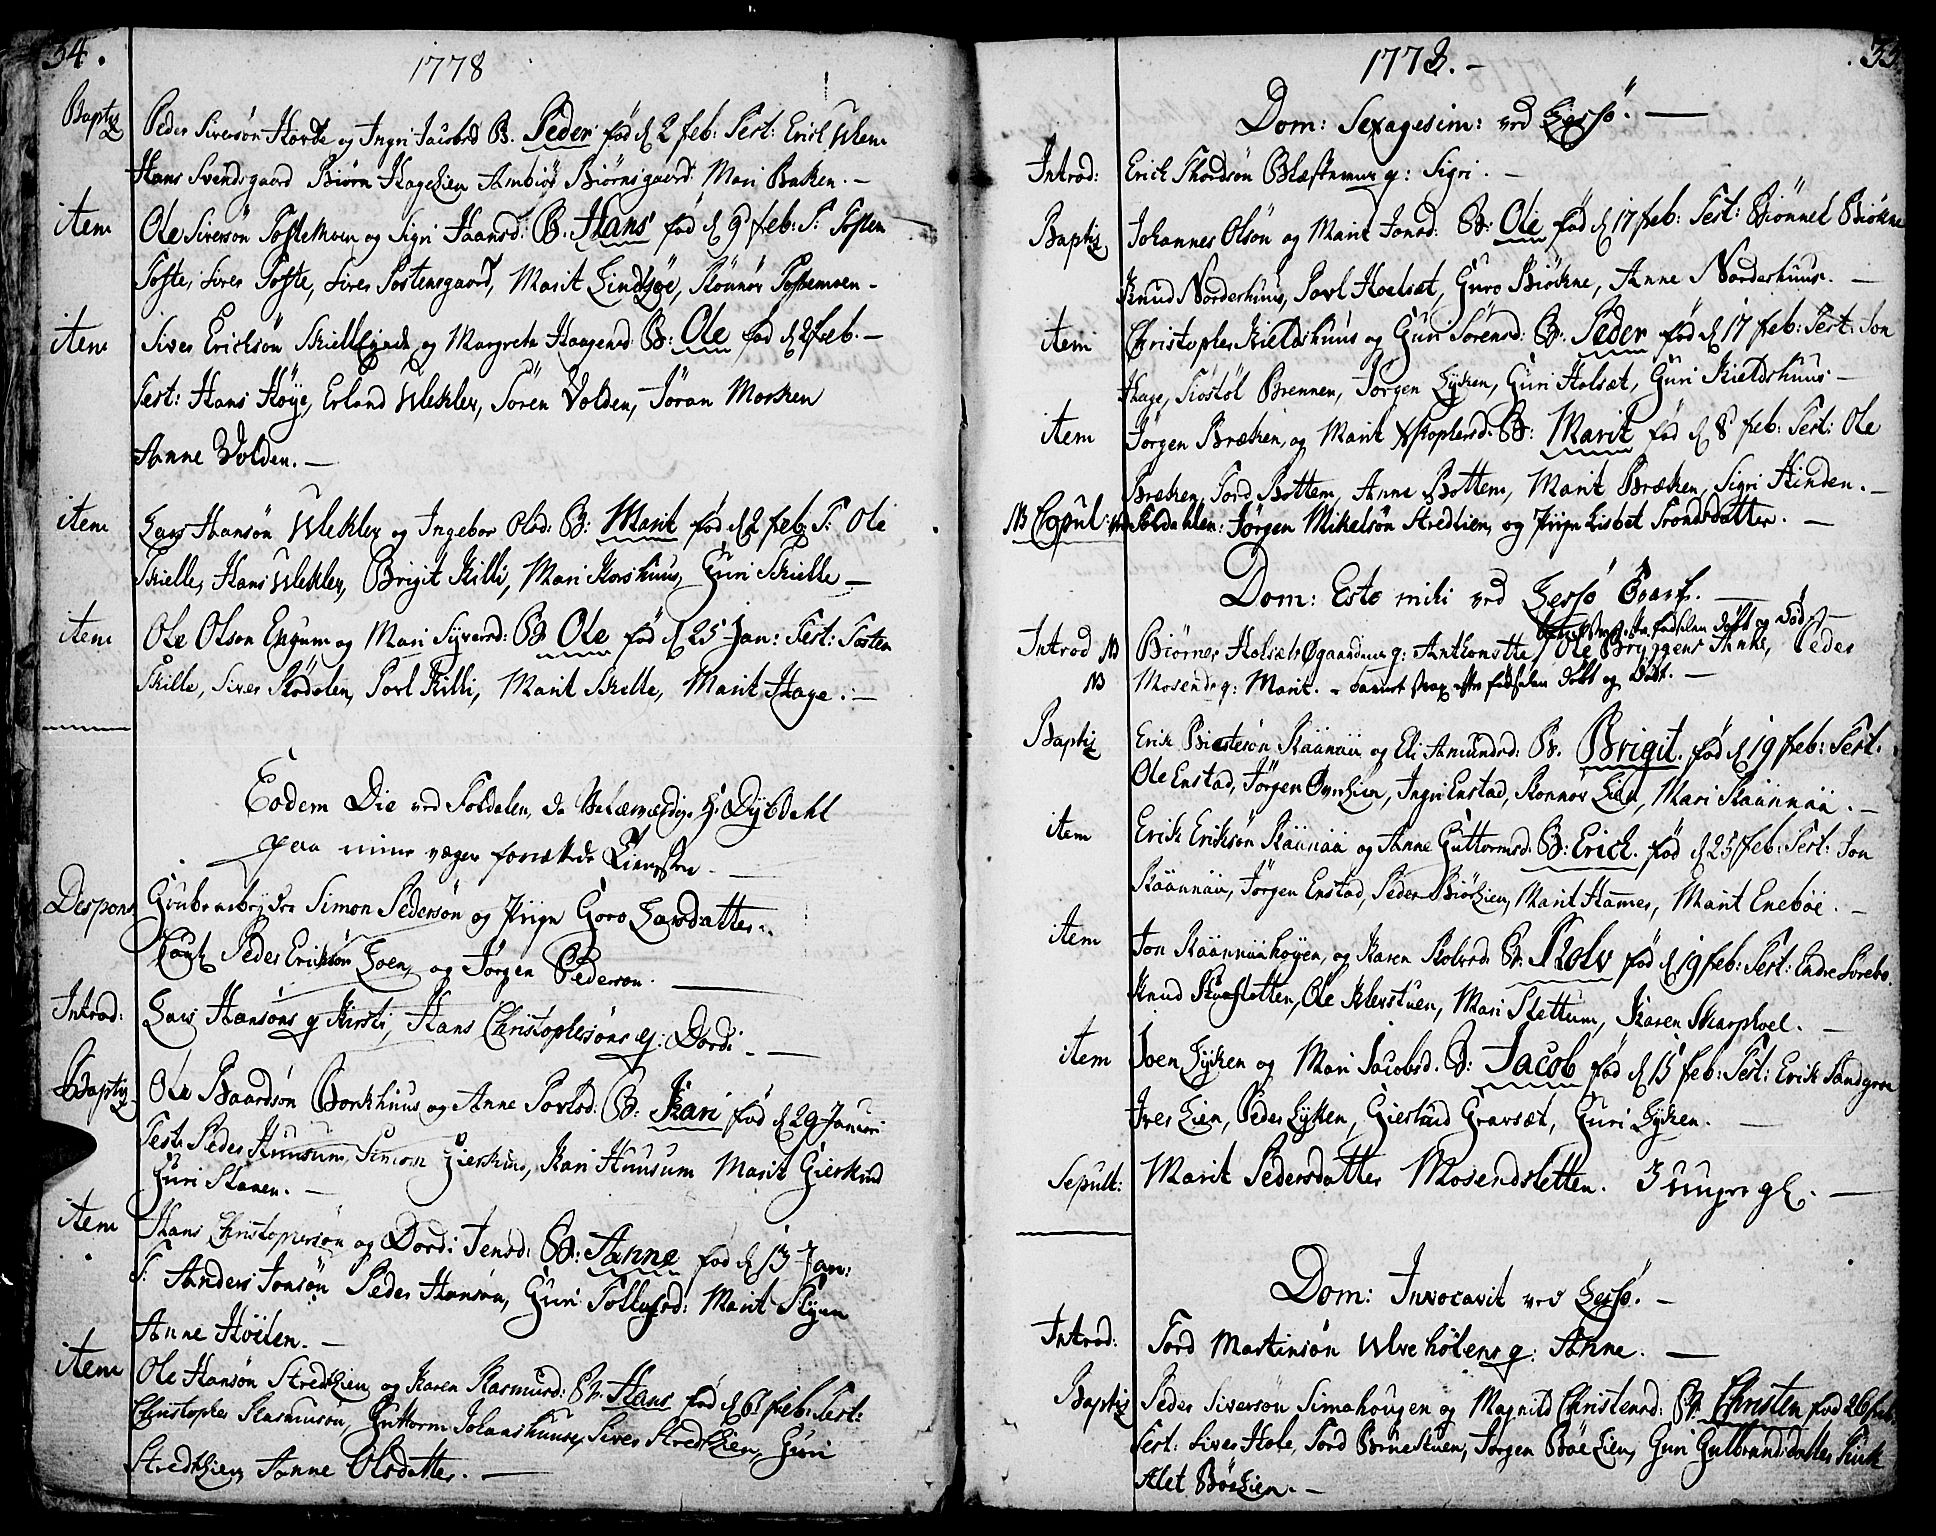 34.
1778
Baptiz Peder Siversön Horde og Ingri Jacobsd B. Peder fød d 2 feb: Test: Erich Ulem
Hans Svendsgaard Biørn Hagelien Ambiør Biørnsgaard Mari Baken. —
item Ole Siversön Toftemoen og Sigri Hansd: B: Hans fød d 9 feb: T: Tosten
Tofte, Siver Tofte, Siver Tostensgaard, Marit Lindsøe, Rönnov Toftemoen —
item Siver Erichsön Skielle og Margrete Haagensd B: Ole fød d 2 feb. —
Test: Hans Høye, Erland Uleklev, Sören Volden, Jöran Morken
Anne Volden. —
item Lars Hansön Uleklev og Ingebor Olsd: B: Marit fød d 2 feb: T: Ole
Skielle, Hans Uleklev, Brigit Killi, Mari Korshuus, Guri Skielle —
item Ole Olson Enggum og Mari Siversd: B: Ole fød d 25 Jan: Test: Tosten
Skille, Siver Rödölen, Povl Killi, Marit Skelle, Marit Hage. —
Eodem Die ved Foldalen, da Velærværdige Hr Dybdahl
paa mine vegne forrættede Tienesten. —
Despons Grubearbeyder Simon Pedersön og Piige Goro Larsdatter.
Cauti Peder Erichsön Loen, og Jörgen Pederson. —
Introd: Lars Hansöns q Kirsti, Hans Christophersöns q: Dordi. —
Baptiz Ole Baardsön Borkhuus og Anne Povlsd: B: Kari fød d 29 Januri
Test: Peder Huusum, Simon Gierkind, Kari Huusum Marit Gierkind
Guri Stanen. —
item Hans Christophersön og Dordi Jensd: B: Anne fød d 13 Jan:
T: Anders Jonsön Peder Hansön, Guri Tollefsd: Marit Flyen
Anne Høilen. —
item Ole Hansön Stredlien og Karen Rasmusd: B: Hans fød d 6 feb: Test:
Christopher Rasmusön, Guttorm Johanshuus, Siver Stredlien, Guri
Stredlien Anne Olsdatter. —
1778. —
35
Dom: Sexagesim: ved Lessö. —
Introd: Erich Thordsön q: Sigri. —
Baptiz Johannes Olsön og Marit Jonsd: B: Ole fød d 17 feb: Test: Biønnel Biökne
Knud Norderhuus, Povl Hoelsæt, Guro Biökne, Anne Norderhuus. —
item Christopher Kieldshuus og Guri Sörensd: B: Peder fød d 17 feb: Test: Jon
Hage, Siöstöl Brennen, Jörgen Lyken, Guri Holsæt, Guri Kieldshuus —
item Jörgen Bræken, og Marit Xstophersd. B: Marit fød d 8 feb: Test: Ole
Bræken, Tord Bottem, Anne Bottem, Marit Bræken, Sigri Hinden. —
NB Copul: ved Foldahlen: Jörgen Mikelsön Stredlien, og Piige Lisbet Trondsdatter. —
Dom: Esto mihi ved Lessö
strax efter fødselen döbt og Död
Introd NB Biørner Holsæt Øgaardens q: Anthonette, Ole Bryggens Anne, Peder
NB Mosends q: Marit. — barnet strax efter fødselen döbt og Död. —
Baptiz Erik Raanaa og Eli Amundsd: B. Brigit. fød d 19 feb: Test:
Ole Enstad, Jörgen Øvrelien, Ingri Enstad, Ronnov Lien, Mari Raannaa. —
item Erik Eriksön Raanaa og Anne Guttormsd. B: Erich. fød d 25 feb: Test: Jon
Raannaa, Jörgen Enstad, Peder Biørlien, Marit Hamer, Marit Eneböe. —
item Jon Raannaahøyen, og Karen Rolvsd. B: Rolv fød d 19 feb: Test: Endre
Knud, Ole Klevstuen, Mari Slettum, Karen Skarphoel. —
item Joen Lyken og Mari Jacobsd. B: Jacob fød d 15 feb: Test: Erik Sandgroe
Iver Lien, Peder Lyken, Gierlaud Gravsæt, Guri Lyken. —
Sepult: Marit Pedersdatter Mosendsletten. 3 uuger gl. —
Dom: Invocavit ved Lessö. —
Introd: Tord Martinsön Ulvehölens q: Anne. —
Baptiz Peder Siversön Simahougen og Magnild Christensd: B. Christen fød 26 feb:
Test: Siver Hole, Tord Börnestuen, Jörgen Böelien, Guri Gulbrandsdatter
Alet Böelien. —